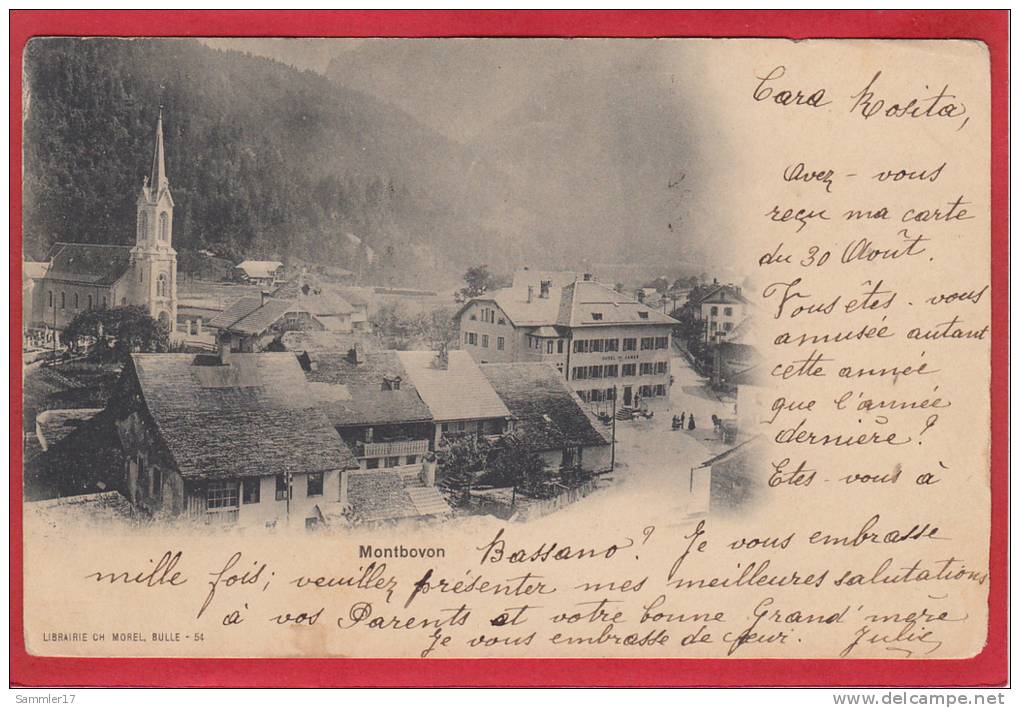 Cara Rosita,
Avez-vous
reçu ma carte
du 30 Août.
Vous êtes-vous
amusée autant
cette année
que l'année
dernière?
Etes-vous à
Bassano? Je vous embrasse
mille fois; veuillez présenter mes meilleures salutations
à vos Parents et votre bonne Grand'mère
Je vous embrasse de cœur. Julie
HOTEL DE JAMAN
Montbovon
LIBRAIRIE CH MOREL, BULLE - 54
Sammler17
delcampe.net